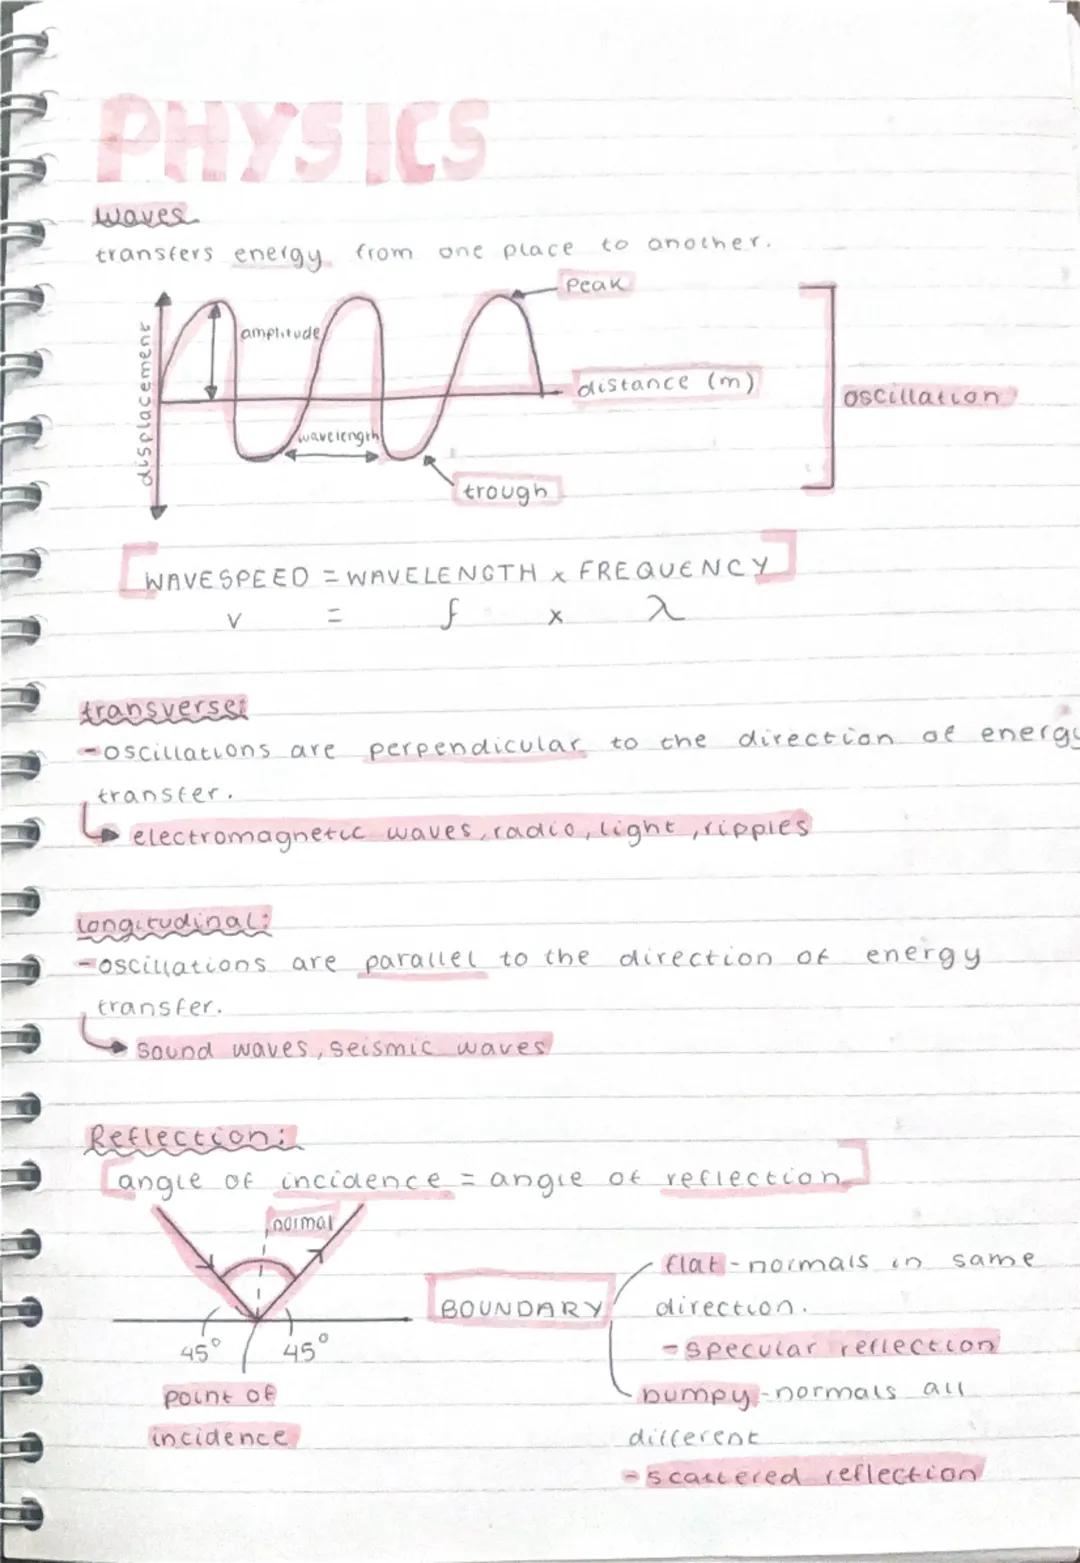 PHYSICS
waves
transfers energy from one place to another.
Peak
amplitude
displacement
distance (m)
oscillation
wavelength
trough
WAVESPEED = WAVELENGTH x FREQUENCY
v = f x λ
transverse:
-oscillations are perpendicular to the direction of energy
transfer.
electromagnetic waves, radio, light, ripples
longitudinal:
-oscillations are parallel to the direction of energy
transfer.
sound waves, seismic waves
Reflection:
angle of incidence = angle of reflection
normal
45° 45°
point of
incidence
BOUNDARY
flat - normals in same
direction.
- specular reflection
bumpy - normals all
different
- scattered reflection